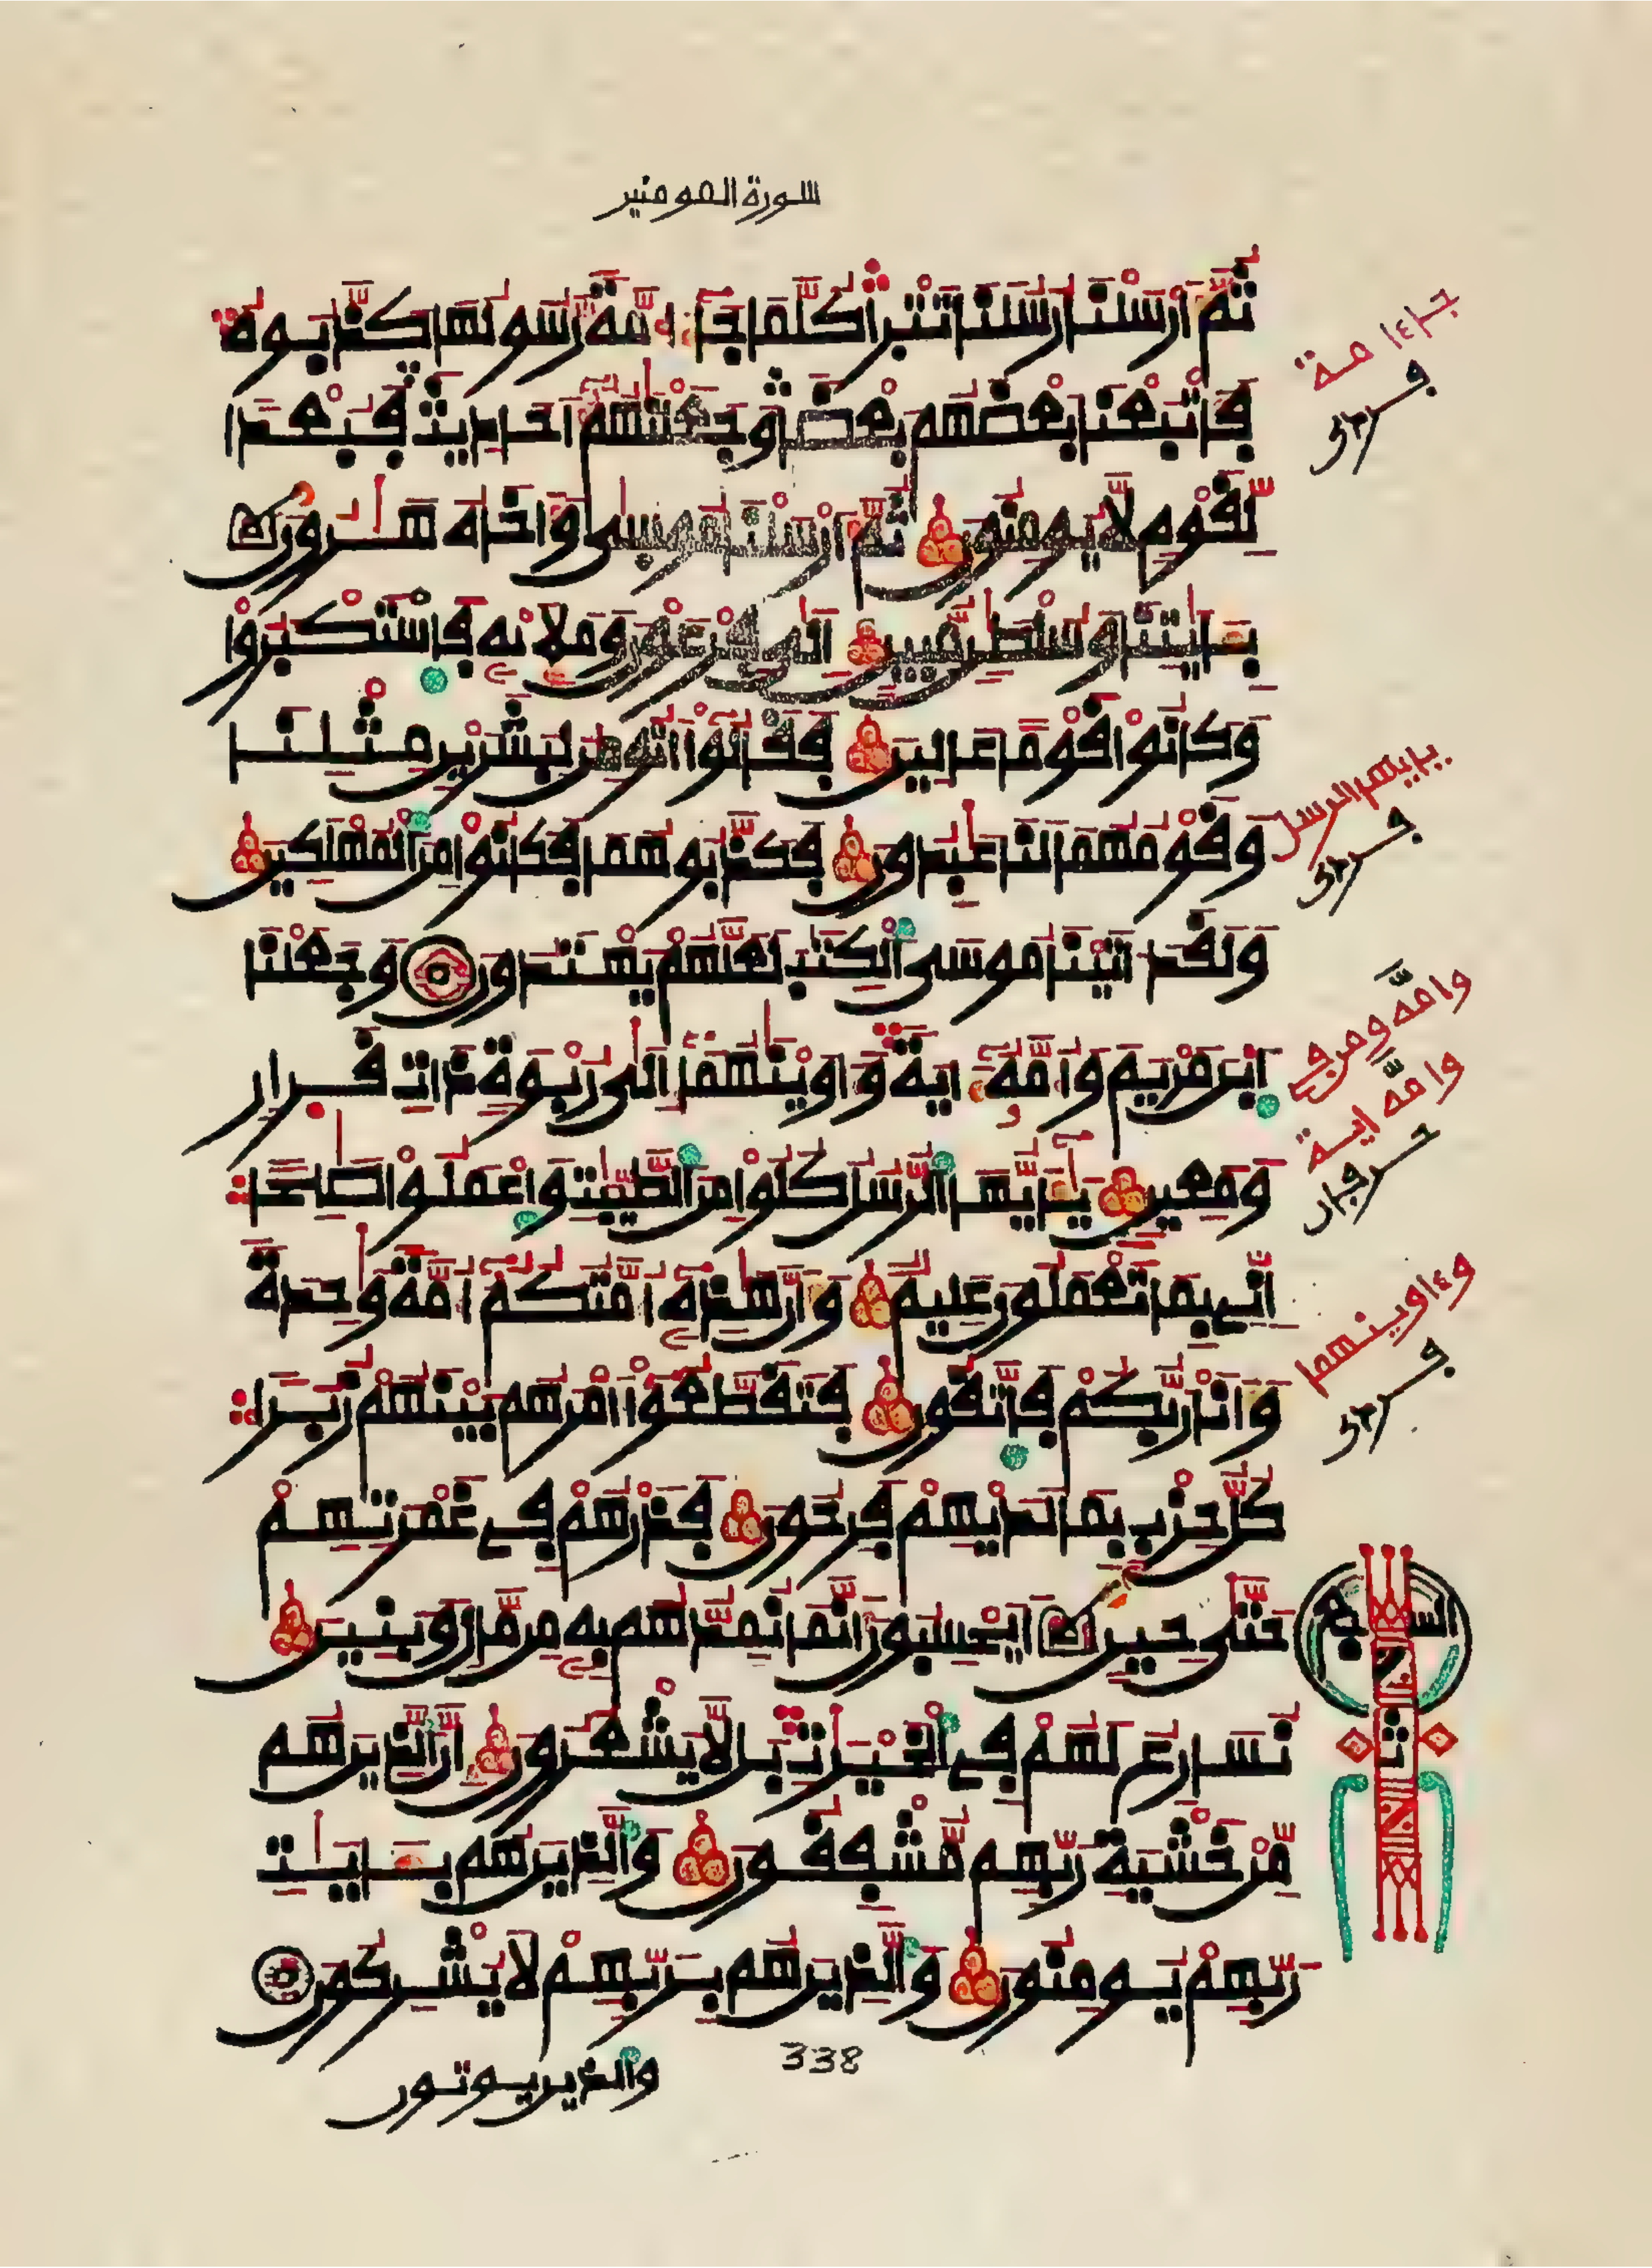 سورة المومنين
ثُمَّ أَرْسَلْنَا رُسُلَنَا تَتْرَا كُلَّمَا جَآءَ امَّةٗ رَّسُولُهَا كَذَّبُوهُ
فَأَتْبَعْنَا بَعْضَهُم بَعْضٗا وَجَعَلْنَٰهُمُ أَحَادِيثَ فَبُعْدٗا
لِّقَوْمٖ لَّا يُومِنُونَ ثُمَّ أَرْسَلْنَا مُوسَىٰ وَأَخَاهُ هَٰرُونَ
بِـَٔايَٰتِنَا وَسُلْطَٰنٖ مُّبِينٍ اِلَىٰ فِرْعَوْنَ وَمَلَإِيْهِۦ فَاسْتَكْبَرُوا
وَكَانُوا قَوْماً عَالِينَ فَقَالُوٓا أَنُومِنُ لِبَشَرَيْنِ مِثْلِنَا
وَقَوْمُهُمَا لَنَا عَٰبِدُونَ فَكَذَّبُوهُمَا فَكَانُوا مِنَ ٱلْمُهْلَكِينَ
وَلَقَدَ اٰتَيْنَا مُوسَى ٱلْكِتَٰبَ لَعَلَّهُمْ يَهْتَدُونَ وَجَعَلْنَا
ٱبْنَ مَرْيَمَ وَأُمَّهُۥٓ ءَايَةٗ وَءَاوَيْنَٰهُمَآ إِلَىٰ رُبْوَةٖ ذَاتِ قَرَارٖ
وَمَعِينٖ يَٰٓأَيُّهَا ٱلرُّسُلُ كُلُوا مِنَ ٱلطَّيِّبَٰتِ وَاعْمَلُوا صَٰلِحاً
اِنِّے بِمَا تَعْمَلُونَ عَلِيمٞ وَأَنَّ هَٰذِهِۦٓ أُمَّتُكُمُۥٓ أُمَّةٗ وَٰحِدَةٗ
وَأَنَا رَبُّكُمْ فَاتَّقُونِ فَتَقَطَّعُوٓا أَمْرَهُم بَيْنَهُمْ زُبُراٗ
كُلُّ حِزْبِۢ بِمَا لَدَيْهِمْ فَرِحُونَ فَذَرْهُمْ فِے غَمْرَتِهِمْ
حَتَّىٰ حِينٍ اَيَحْسِبُونَ أَنَّمَا نُمِدُّهُم بِهِۦ مِن مَّالٖ وَبَنِينَ
نُسَارِعُ لَهُمْ فِے ٱلْخَيْرَٰتِ بَل لَّا يَشْعُرُونَ إِنَّ ٱلذِينَ هُم
مِّنْ خَشْيَةِ رَبِّهِم مُّشْفِقُونَ وَٱلذِينَ هُم بِـَٔايَٰتِ
رَبِّهِمْ يُومِنُونَ وَٱلذِينَ هُم بِرَبِّهِمْ لَا يُشْرِكُونَ
والذين يوتون
338
جاءا مة
يايها الرسل
وامه
وامه اية
وءاوينهما